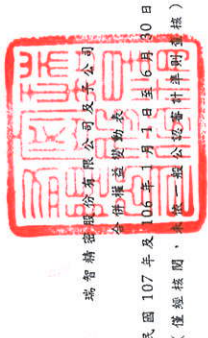 瑞智精密股份有限公司及子公司
合併權益變動表
民國107年及106年1月1日至6月30日
(僅經核閱,未依一般公認審計準則查核)